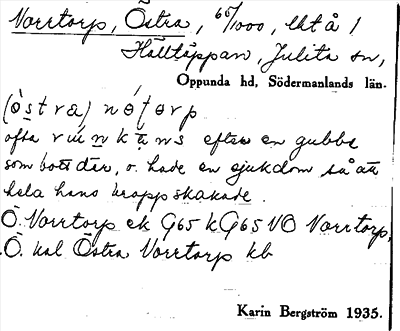 Norrtorp, Östra, 65/1000, lht å 1
Hälltäppan, Julita sn,
Oppunda hd, Södermanlands län.
(östra)
ofta efter en gubbe
som bott där, o. hade en sjukdom så att
hela hans kropp skakade.
Ö. Norrtorp ek G65 k G65 VO Norrtorp,
Ö. kal Östra Norrtorp kb
Karin Bergström 1935.